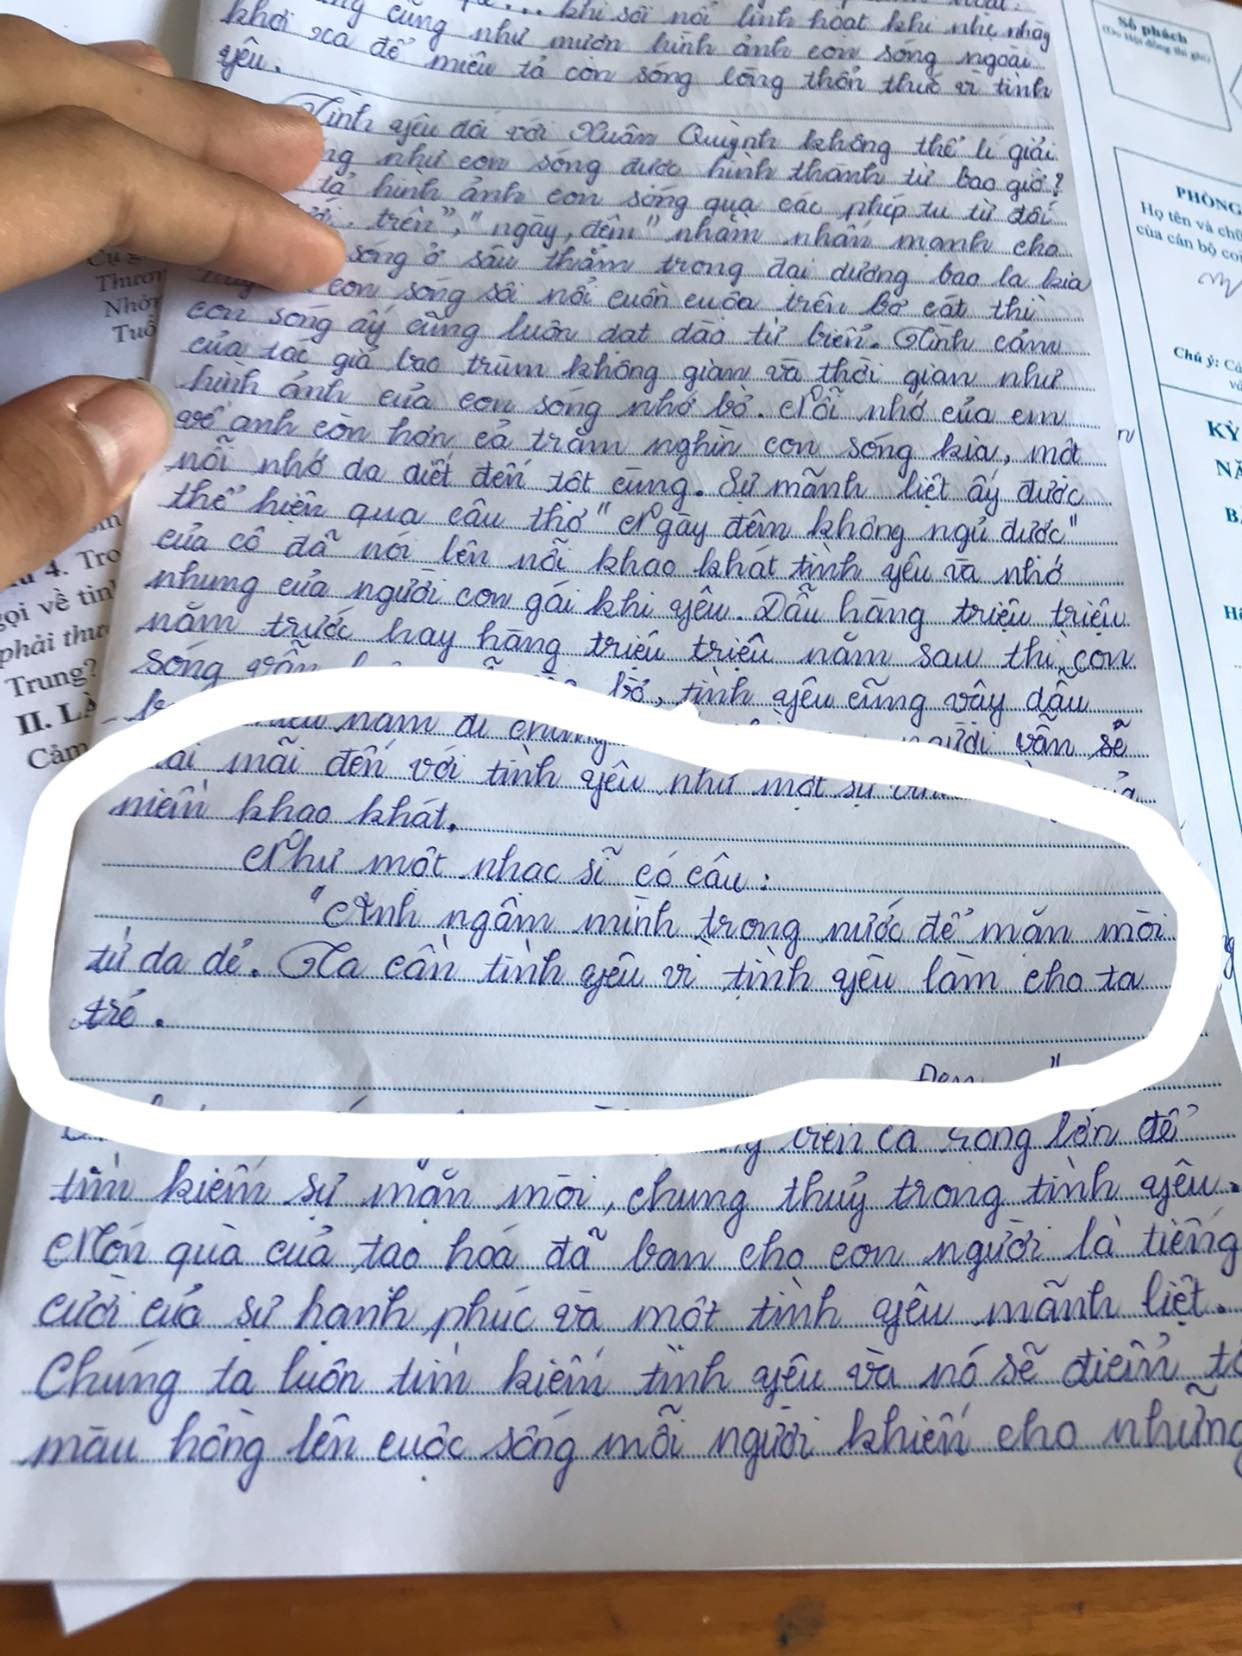 khi sôi nổi linh hoạt khi nhẹ nhàng
cũng như mượn hình ảnh con sóng ngoài
khơi xa để miêu tả còn sóng lòng thổn thức vì tình
yêu.
Tình yêu đối với Xuân Quỳnh không thể lí giải
như con sóng được hình thành từ bao giờ?
tả hình ảnh con sóng qua các phép tu từ đối
trên", "ngày, đêm" nhằm nhấn mạnh cho
sóng ở sâu thẳm trong đại dương bao la kia
con sóng sôi nổi cuồn cuộn trên bờ cát thì
con sóng ấy cũng luôn dạt dào từ biển. Tình cảm
của tác giả bao trùm không gian và thời gian như
hình ảnh của con sóng nhớ bờ. Nỗi nhớ của em
về anh còn hơn cả trăm nghìn con sóng kia, một
nỗi nhớ da diết đến tột cùng. Sự mãnh liệt ấy được
thể hiện qua câu thơ "Ngày đêm không ngủ được"
của cô đã nói lên nỗi khao khát tình yêu và nhớ
nhung của người con gái khi yêu. Dẫu hàng triệu triệu
năm trước hay hàng triệu triệu năm sau thì con
sóng vẫn bờ, tình yêu cũng vậy dẫu
năm đi chăng người vẫn sẽ
mãi đến với tình yêu như một sự
niềm khao khát.
Như một nhạc sĩ có câu:
"Anh ngâm mình trong nước để mặn mòi
từ da dẻ. Ta cần tình yêu vì tình yêu làm cho ta
trẻ.
Đen"
trên cả rộng lớn để
tìm kiếm sự mặn mòi, chung thuỷ trong tình yêu.
Món quà của tạo hoá đã ban cho con người là tiếng
cười của sự hạnh phúc và một tình yêu mãnh liệt.
Chúng ta luôn tìm kiếm tình yêu và nó sẽ điểm tô
màu hồng lên cuộc sống mỗi người khiến cho những
Số phách
(Do Hội đồng thi ghi)
PHÒNG
Họ tên và chữ
của cán bộ coi
Chú ý:
KỲ
Thươn
Nhớn
Tuổ
4. Tro
gọi về tình
phải thư
Trung?
II. LÀ
Cảm